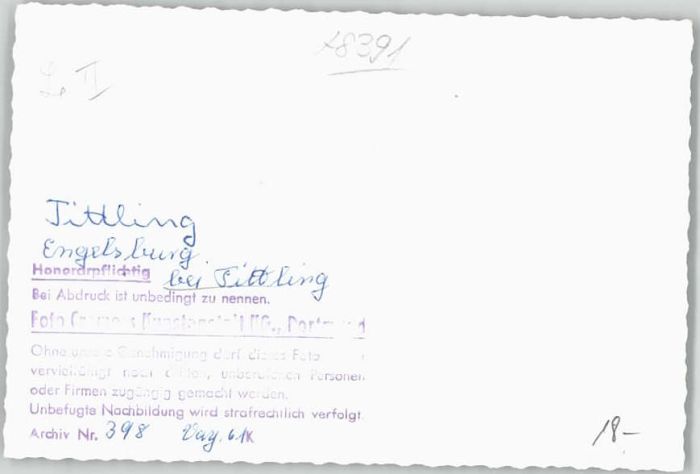 18391
L II
Tittling
Engelsburg
bei Tittling
Honorarpflichtig
Bei Abdruck ist unbedingt zu nennen.
Foto Kunstanstalt KG., Dortmund
Ohne unsere Genehmigung darf dieses Foto
vervielfältigt noch dritten, unberufenen Personen
oder Firmen zugängig gemacht werden.
Unbefugte Nachbildung wird strafrechtlich verfolgt.
Archiv Nr. 398 Bay. 61K
18-